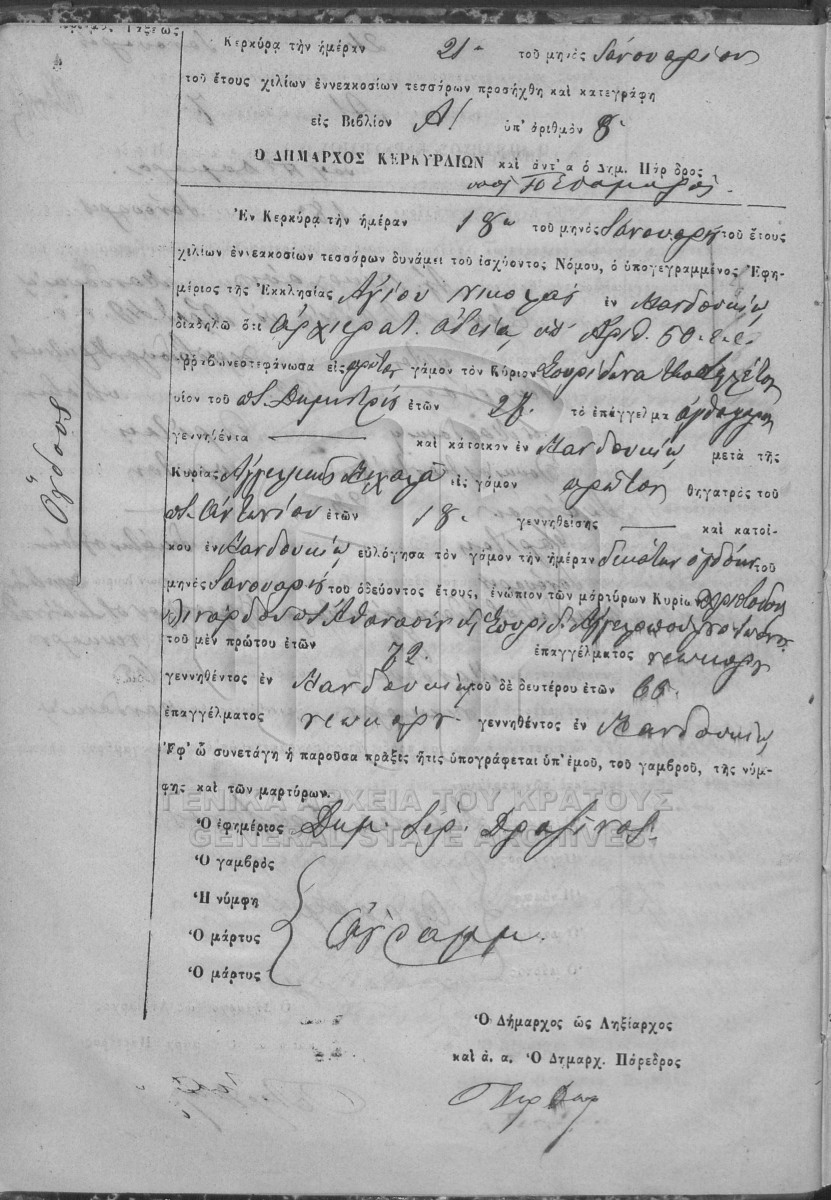 Κερκύρᾳ τὴν ἡμέραν 21η τοῦ μηνὸς Ἰανουαρίου
τοῦ ἔτους χιλίων ἐννεακοσίων τεσσάρων προσήχθη καὶ κατεγράφη
εἰς Βιβλίον Α! ὑπ' ἀριθμὸν 8
Ὁ ΔΗΜΑΡΧΟΣ ΚΕΡΚΥΡΑΙΩΝ καὶ ἀντ' α ὁ Δημ. Πάρεδρος
Ἐν Κερκύρᾳ τὴν ἡμέραν 18η τοῦ μηνὸς Ἰανουαρίου τοῦ ἔτους
χιλίων ἐννεακοσίων τεσσάρων δυνάμει τοῦ ἰσχύοντος Νόμου, ὁ ὑπογεγραμμένος Ἐφη-
μέριος τῆς Ἐκκλησίας Ἁγίου Νικολάου ἐν Μανδουκίῳ
διαδηλῶ ὅτι Ἀρχιερατ. ἀδείᾳ ὑπ' ἀριθ. 50
ἀρραβωνεοτεφάνωσα εἰς πρῶτον γάμον τὸν Κύριον Σπυρίδωνα
υἱὸν τοῦ π. Δημητρίου ἐτῶν 27 τὸ ἐπάγγελμα
γεννηθέντα καὶ κάτοικον ἐν Μανδουκίῳ μετὰ τῆς
Κυρίας Ἀγγελικῆς εἰς γάμον πρῶτον θηγατρὸς τοῦ
π. Ἀντωνίου ἐτῶν 18 γεννηθείσης καὶ κατοί-
κου ἐν Μανδουκίῳ εὐλόγησα τὸν γάμον τὴν ἡμέραν δεκάτην ὀγδόην τοῦ
μηνὸς Ἰανουαρίου τοῦ ὁδεύοντος ἔτους, ἐνώπιον τῶν μαρτύρων Κυρίων
π. Ἀθανασίου κ Σπυρίδ.
τοῦ μὲν πρώτου ἐτῶν 72 ἐπαγγέλματος νεωκόρου
γεννηθέντος ἐν Μανδουκίῳ τοῦ δὲ δευτέρου ἐτῶν 66
ἐπαγγέλματος νεωκόρου γεννηθέντος ἐν Μανδουκίῳ
Ἐφ' ᾧ συνετάγη ἡ παροῦσα πρᾶξις ἥτις ὑπογράφεται ὑπ' ἐμοῦ, τοῦ γαμβροῦ, τῆς νύμ-
φης καὶ τῶν μαρτύρων.
ΓΕΝΙΚΑ ΑΡΧΕΙΑ ΤΟΥ ΚΡΑΤΟΥΣ
GENERAL STATE ARCHIVES
Ὁ ἐφημέριος Δημ. Ἱερ.
Ὁ γαμβρὸς
Ἡ νύμφη
Ὁ μάρτυς Ἀγραμμ.
Ὁ μάρτυς
Ὁ Δήμαρχος ὡς Ληξίαρχος
καὶ ἀ. α. Ὁ Δημαρχ. Πάρεδρος
Ὄγδοος